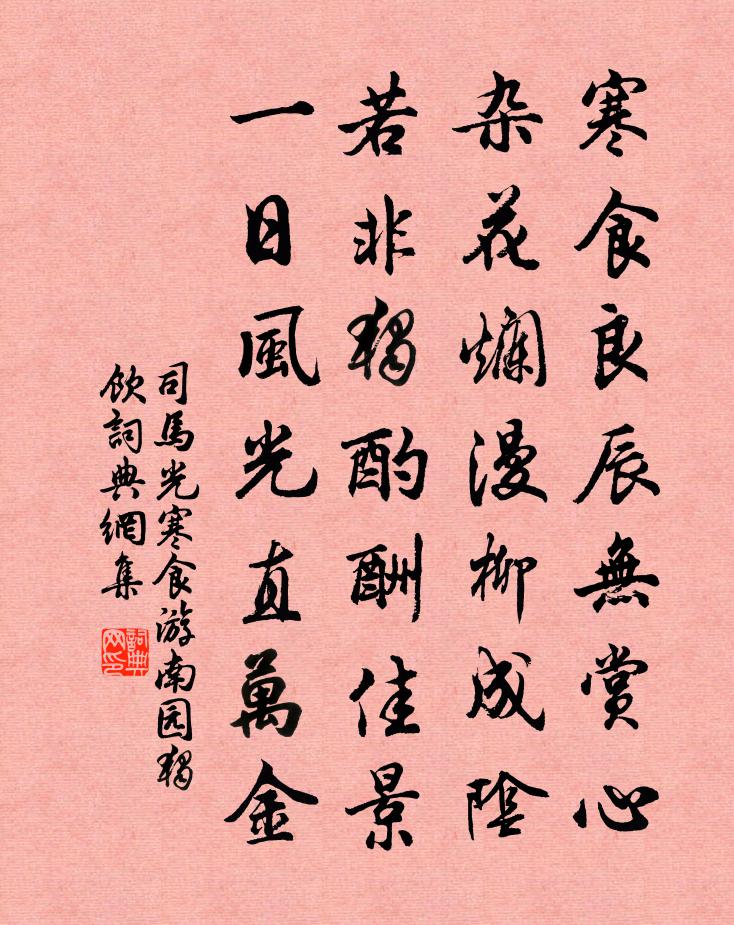 寒食良辰無賞心
杂花爛漫柳成陰
若非獨酌酬佳景
一日風光直萬金
司馬光寒食游南园獨
飲詞典網集
詞典
网印